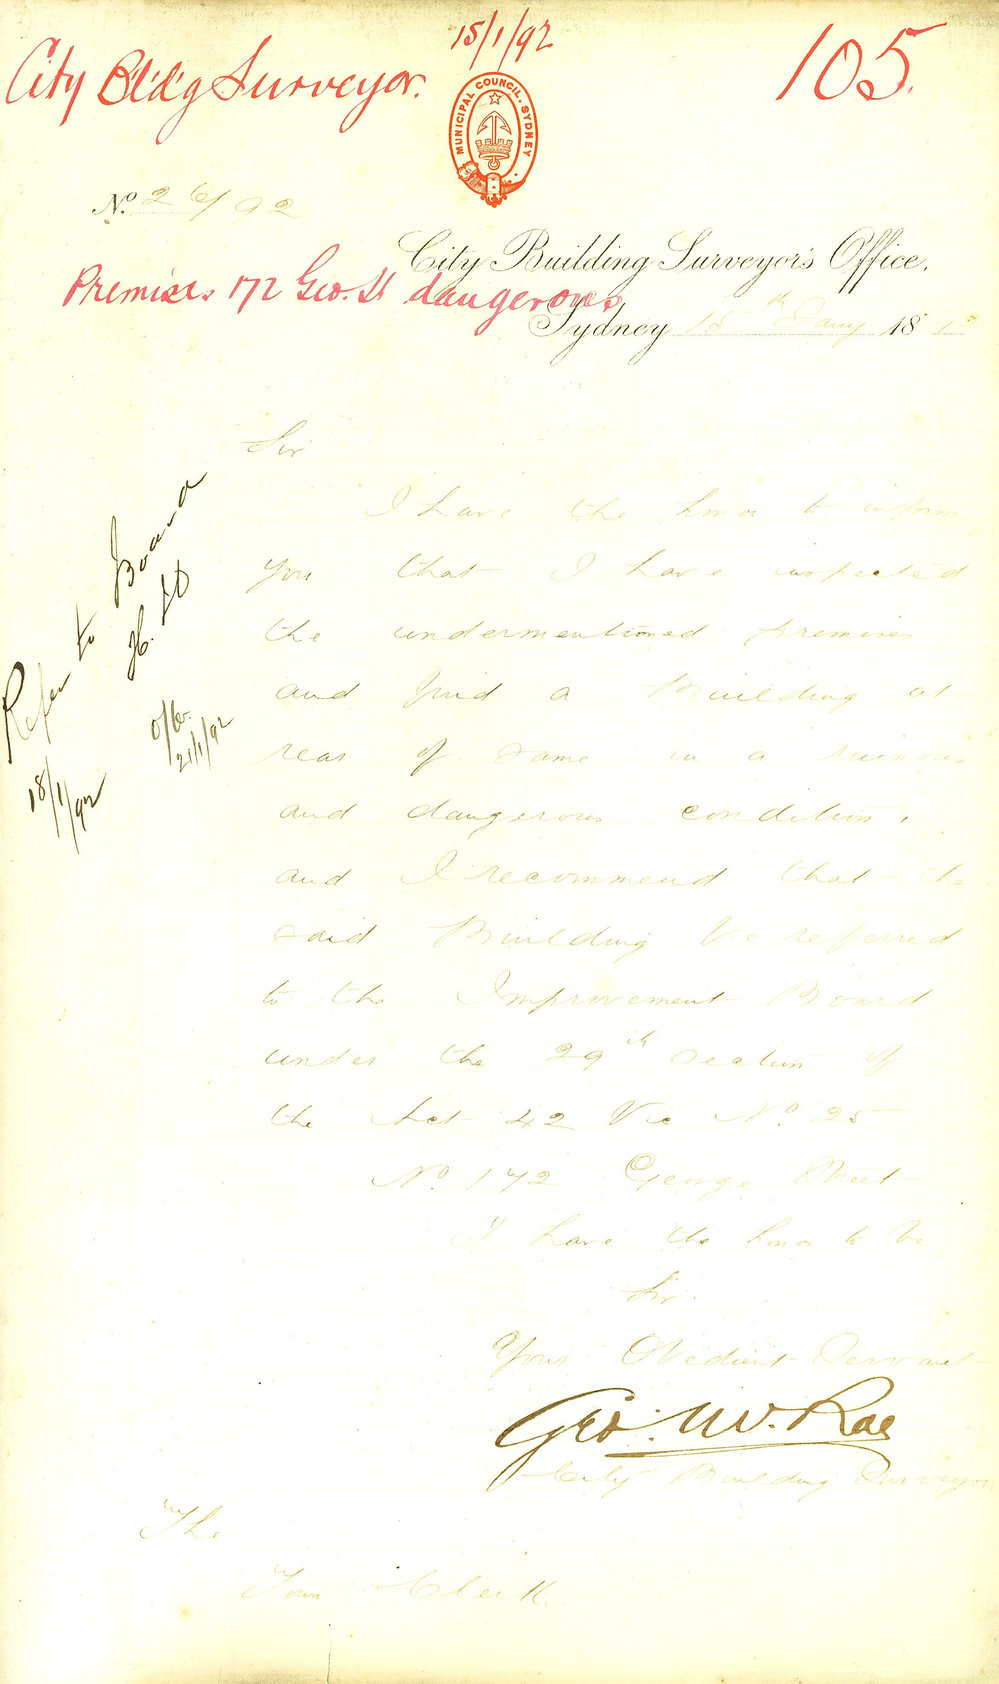 15/1/92
City Bld'g Surveyor.
105.
MUNICIPAL COUNCIL. SYDNEY
No. 26/92
City Building Surveyor's Office,
Premises 172 Geo. St dangerous
Sydney 15th Jany 18
Sir
I have the honor to inform
you that I have inspected
the undermentioned premises
and find a Building at
rear of same in a ruinous
and dangerous condition,
and I recommend that the
said Building be referred
to the Improvement Board
under the 29th section of
the Act 42 Vic No. 25
No. 172 George Street
I have the honor to be
Sir.
Your Obedient Servant
Geo. McRae
City Building Surveyor
The
Town Clerk
Refer to Board
H. 
18/1/92
21/1/92